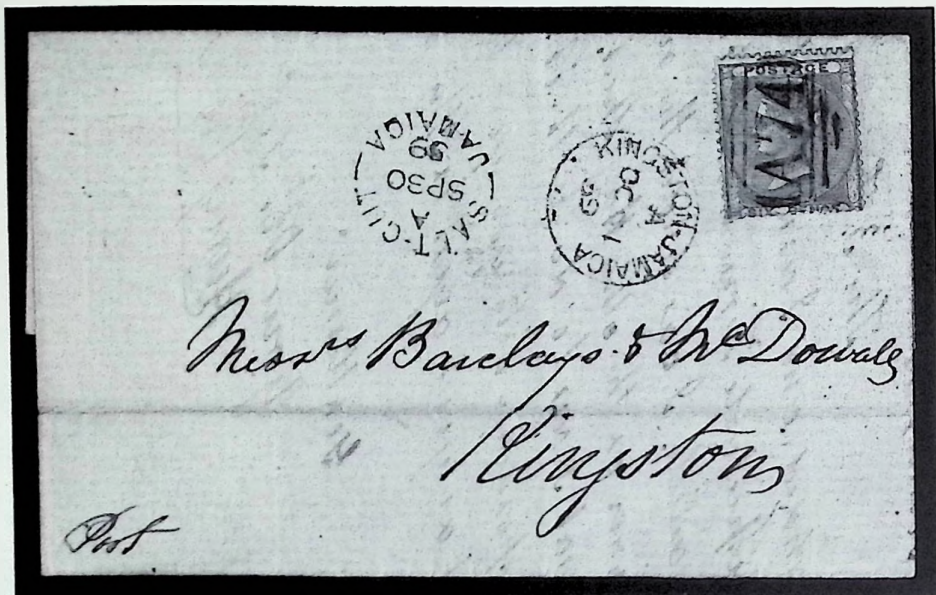 POSTAGE
A74
SALT-GUT
A
SP30
59
JAMAICA
KINGSTON-JAMAICA
A
OC 1
59
Messrs Barclays & McDowals
Kingston
Post